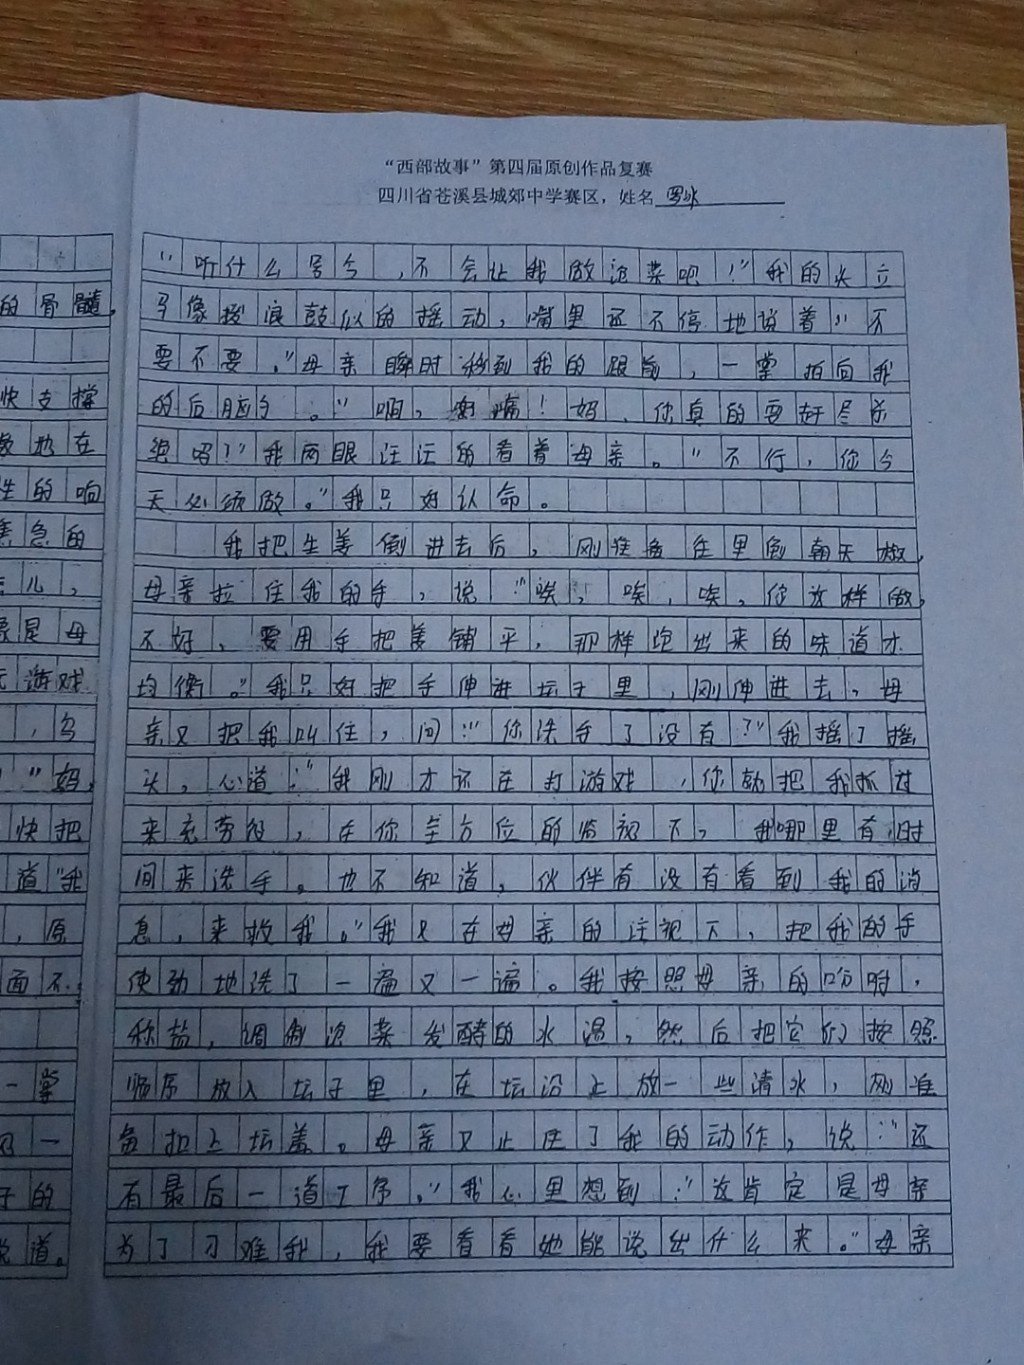 “西部故事”第四届原创作品复赛
四川省苍溪县城郊中学赛区，姓名
的骨髓，
快支撑
地在
的响
急的
儿，
是母
游戏
，
”妈，
快把
道“我
，原
面不
一掌
一
子的
道。
“听什么号令，不会让我做泡菜吧！”我的头立
马像拨浪鼓似的摇动，嘴里还不停地说着“不
要不要。”母亲瞬时移到我的跟前，一掌拍向我
的后脑勺。“啊，好痛！妈、你真的要赶尽杀
绝吗？”我两眼汪汪的看着母亲。“不行，你今
天必须做。”我只好认命。
我把生姜倒进去后，刚准备往里倒朝天椒，
母亲拉住我的手，说：“唉，唉，唉，你这样做，
不好、要用手把姜铺平，那样泡出来的味道才
均衡。”我只好把手伸进坛子里，刚伸进去，母
亲又把我叫住，问：“你洗手了没有？”我摇了摇
头，心道：“我刚才还在打游戏，你就把我抓过
来充劳役，在你全方位的监视下，我哪里有时
间来洗手。也不知道，伙伴有没有看到我的消
息，来救我。”我只在母亲的注视下，把我的手
使劲地洗了一遍又一遍。我按照母亲的吩咐，
称盐，调制泡菜发酵的水温，然后把它们按照
顺序放入坛子里，在坛沿上放一些清水，刚准
备扣上坛盖。母亲又止住了我的动作，说：“还
有最后一道工序。”我心里想到：“这肯定是母亲
为了刁难我，我要看看她能说出什么来。”母亲